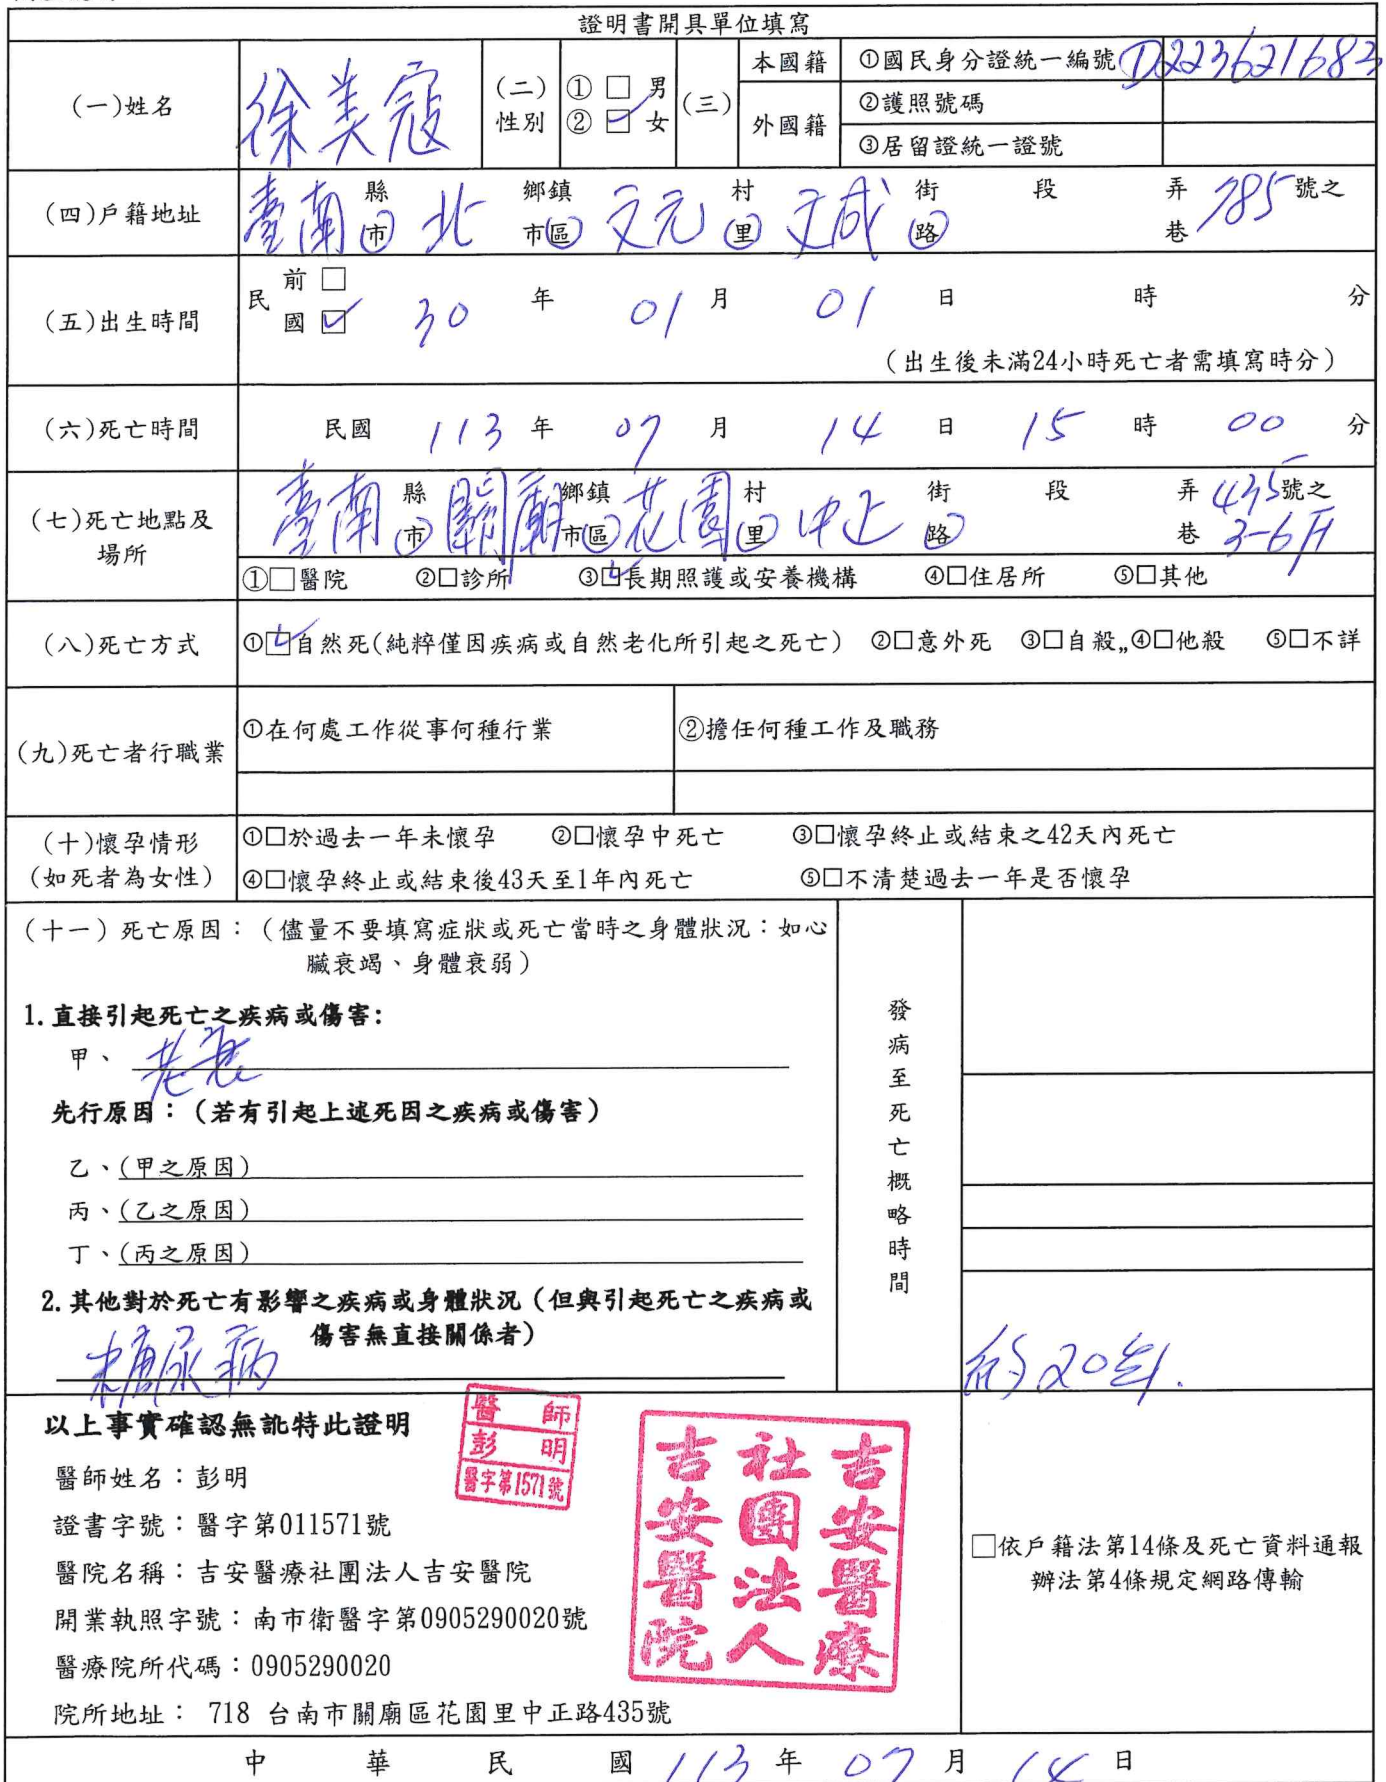 證明書開具單位填寫
(一)姓名 徐美寇 (二)性別 ①□男 ②☑女 (三) 本國籍 ①國民身分證統一編號 D223621683
外國籍 ②護照號碼
③居留證統一證號
(四)戶籍地址 臺南 縣市 北 鄉鎮市區 文元 村里 文成 街路 段 弄巷 785 號之
(五)出生時間 民 前□ 國☑ 30 年 01 月 01 日 時 分
(出生後未滿24小時死亡者需填寫時分)
(六)死亡時間 民國 113 年 07 月 14 日 15 時 00 分
(七)死亡地點及場所 臺南 縣市 關廟 鄉鎮市區 花園 村里 中正 街路 段 弄巷 435 號之 3-6F
①□醫院 ②□診所 ③☑長期照護或安養機構 ④□住居所 ⑤□其他
(八)死亡方式 ①☑自然死(純粹僅因疾病或自然老化所引起之死亡) ②□意外死 ③□自殺„④□他殺 ⑤□不詳
(九)死亡者行職業 ①在何處工作從事何種行業 ②擔任何種工作及職務
(十)懷孕情形 ①□於過去一年未懷孕 ②□懷孕中死亡 ③□懷孕終止或結束之42天內死亡
(如死者為女性) ④□懷孕終止或結束後43天至1年內死亡 ⑤□不清楚過去一年是否懷孕
(十一)死亡原因：(儘量不要填寫症狀或死亡當時之身體狀況：如心
臟衰竭、身體衰弱)
發病至死亡概略時間
1.直接引起死亡之疾病或傷害：
甲、老衰
先行原因：(若有引起上述死因之疾病或傷害)
乙、(甲之原因)
丙、(乙之原因)
丁、(丙之原因)
2.其他對於死亡有影響之疾病或身體狀況(但與引起死亡之疾病或
傷害無直接關係者)
糖尿病 約20年.
以上事實確認無訛特此證明
醫師
彭明
醫字第1571號
吉安醫療
社團法人
吉安醫院
醫師姓名：彭明
證書字號：醫字第011571號
醫院名稱：吉安醫療社團法人吉安醫院
開業執照字號：南市衛醫字第0905290020號
醫療院所代碼：0905290020
院所地址： 718 台南市關廟區花園里中正路435號
□依戶籍法第14條及死亡資料通報
辦法第4條規定網路傳輸
中華民國 113 年 07 月 14 日